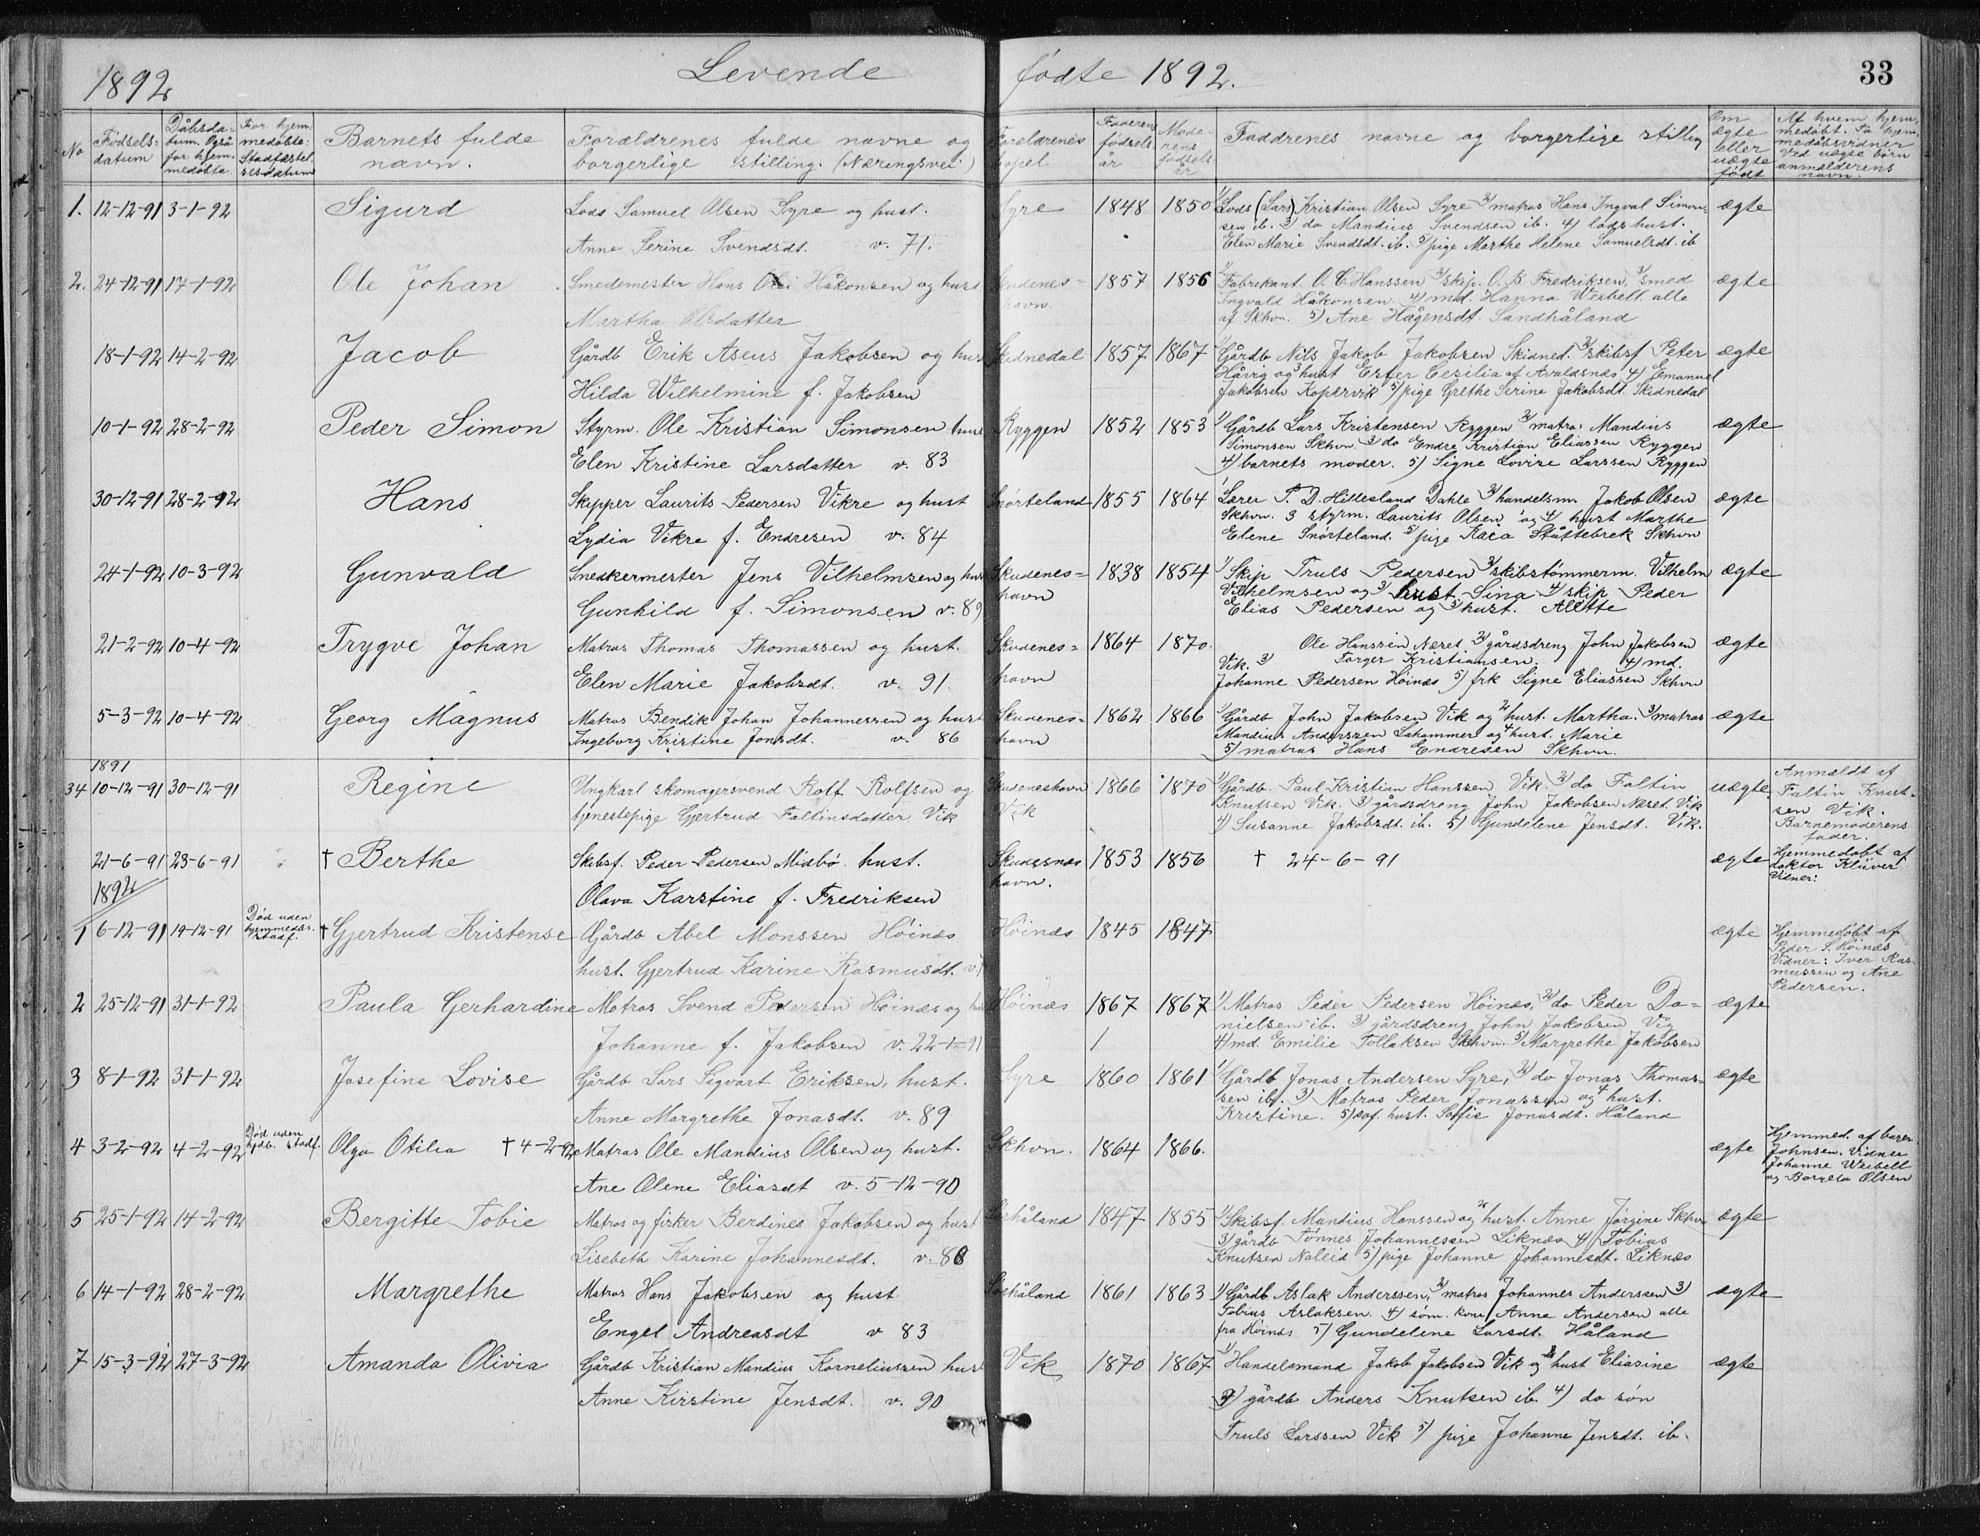 1892 Levende fødte 1892. 33
No
Fødsels-
datum
Dåbsda-
tum. Også
for hjem-
medøbte
For hjem-
medøbte:
Stadfæstel-
sesdatum
Barnets fulde
navn.
Forældrenes fulde navne og
borgerlige stilling. (Næringsvei)
Forældrenes
bopel
Faderens
fødsels-
år
Mode-
rens
fødsels-
år
Faddrenes navne og borgerlige stilling
Om
ægte
eller
uægte
født
Af hvem hjem-
medøbt. Så hjem-
medåbsvidner
Ved uægte børn
anmelderens
navn.
1. 12-12-91 3-1-92 Sigurd Lods Samuel Olsen Syre og hust.
Anne Serine Svendsdt. v. 71.
Syre 1848 1850 1/ Lods (Lars) Kristian Olsen Syre 2/ matros Hans Ingval Simon-
sen ib. 3/ do Mandius Svendsen ib. 4) lods hust.
Elen Marie Svendsdt. ib. 5/ pige Marthe Helene Samuelsdt. ib
ægte
2. 24-12-91 17-1-92 Ole Johan Smedemester Hans Håkonsen og hust
Martha Olsdatter
Skudenes-
havn.
1857 1856 1/ Fabrikant O. C. Hanssen 2/ skip. O. B Fredriksen, 3/ smed
Ingvald Håkonsen. 4) md. Hanna Weibell alle
af Skhvn. 5) Ane Hågensdt. Sandhåland
ægte
18-1-92 14-2-92 Jacob Gårdb Erik Aseus Jakobsen og hust
Hilda Wilhelmine f. Jakobsen
Skidnedal 1857 1867 1/ Gårdb Nils Jakob Jakobsen Skidned. 2/ skibsf Peter
Håvig og 3 hust Ester Cesilia af Avaldsnæs 4) Emanuel
Jakobsen Kopervik 5/ pige Grethe Serine Jakobsdt. Skidnedal
ægte
10-1-92 28-2-92 Peder Simon Styrm. Ole Kristian Simonsen hust
Elen Kristine Larsdatter v. 83
Ryggen 1852 1853 1/ Gårdb Lars Kristensen Ryggen 2/ matro. Mandius
Simonsen Skhvn 3/ do Endre Kristian Eliassen Ryggen
4/ barnets moder. 5) Signe Lovise Larssen Ryggen
ægte
30-12-91 28-2-92 Hans Skipper Laurits Pedersen Vikre og hust
Lydia Vikre f. Endresen v. 84
Snørteland 1855 1864 1/ Lærer P. D. Hillesland Dahle 2/ handelsm. Jakob Olsen
Skhvn. 3 styrm. Laurits Olsen og 4) hust Marthe
Elene Snørteland. 5/ pige Kaia Støttebrek Skhvn
ægte
24-1-92 10-3-92 Gunvald Snedkermester Jens Vilhelmsen og hust
Gunhild f. Simonsen v. 89
Skudenes-
havn
1838 1854 1/ Skip Truls Pedersen 2/ skibstømmerm. Vilhelm
Vilhelmsen og 3/ hust Sina 4/ skip Peder
Elias Pedersen og 5/ hust. Alette
ægte
21-2-92 10-4-92 Trygve Johan Matros Thomas Thomassen og hust.
Elen Marie Jakobsdt. v. 91.
Skudenes-
havn
1864 1870. Ole Hanssen Næret 2/ gårdsdreng John Jakobsen
Vik. 3/ Torger Kristiansen. 4) md.
Johanne Pedersen Høinæs 5) frk Signe Eliassen Skhvn
ægte
5-3-92 10-4-92 Georg Magnus Matros Bendik Johan Johannessen og hust
Ingeborg Kristine Jonsdt. v. 86
Skudenes-
havn
1862 1866 1/ Gårdb John Jakobsen Vik og 2/ hust. Martha. 3/ matros
Mandius Anderssen Lahammer og 4 hust. Marie
5) matros Hans Endresen Skhvn.
ægte
1891
34 10-12-91 30-12-91 Regine Ungkarl skomagersvend Rolf Rolfsen og
tjenestepige Gjertrud Faltinsdatter Vik
Skudeneshavn
Vik
1866 1870 1/ Gårdb. Paul Kristian Hanssen Vik. 2/ do Faltin
Knutsen Vik. 3/ gårdsdreng John Jakobsen Næset. Vik
4) Susanne Jakobsdt. ib. 5) Gundelene Jensdt. Vik.
uægte Anmeldt af
Faltin Knut-
sen Vik.
Barnemoderens
fader.
21-6-91 23-6-91 † Berthe Skibsf. Peder Pedersen Midbø. hust.
Olava Karstine f. Fredriksen
Skudesnæs
havn.
1853 1856 † 24-6-91 ægte Hjemmedøbt af
doktor Klüver
Vidner:
1892
1 6-12-91 19-12-91 Død uden
hjemmedåbs.
stadf.
† Gjertrud Kristense Gårdb Abel Monssen Høinæs
hust. Gjertrud Karine Rasmusdt.
Høinæs 1845 1847 ægte Hjemmedøbt af
Peder S. Høinæs
Vidner: Iver Ras-
mussen og Ane
Pedersen.
2 25-12-91 31-1-92 Paula Gerhardine Matros Svend Pedersen Høinæs og hust
Johanne f. Jakobsen v. 22-1-91
Høinæs 1867 1867 1/ Matros Peder Pedersen Høinæs, 2/ do Peder Da-
nielsen ib. 3/ gårdsdreng John Jakobsen Vig
4/ md. Emilie Tollaksen Skhvn. 5/ Margrethe Jakobsen
ægte
3 8-1-92 31-1-92 Josefine Lovise Gårdb Lars Sigvart Eriksen, hust.
Anne Margrethe Jonasdt. v. 89
Syre 1860 1861 1/ Gårdb Jonas Andersen Syre, 2/ do Jonas Thomas-
sen ib. 3) Matros Peder Jonassen og 4 hust.
Kristine. 5) hust. Sofie Jonasdt. Håland
ægte
4 3-2-92 4-2-92 Død uden
hjdb. stadf.
Olga Otilia † 4-2-92 Matros Ole Mandius Olsen og hust.
Ane Olene Eliasdt v. 5-12-90
Skhvn. 1864 1866. ægte Hjemmed. af
Johnsen. Vidner
Johanne Weibell
og Olsen
5 25-1-92 14-2-92 Bergitte Tobie Matros og fisker Berdines Jakobsen og hust
Lisebeth Karine Johannesdt. v. 86
Sørhåland 1847 1855 1/ Skibsf. Mandius Hanssen og 2/ hust. Anne Jørgine Skhvn
3/ gårdb Tønnes Johannessen Liknæs 4/ Tobias
Knutsen Naleid 5/ pige Johanne Johannesdt. Liknæs
ægte
6 14-1-92 28-2-92 Margrethe Matros Hans Jakobsen og hust
Engel Andreasdt v 83
Sørhåland 1861 1863 1/ Gårdb. Aslak Anderssen, 2/ matros Johannes Anderssen 3)
Tobias Aslaksen. 4) søm. kone Anne Andersen alle
fra Høinæs 5) Gundelene Larsdt. Håland
ægte
7 15-3-92 27-3-92 Amanda Olivia Gårdb Kristian Mandius Korneliussen hust
Anne Kirstine Jensdt. v. 90
Vik 1870 1867 1/ Handelsmand Jakob Jakobsen Vik og 2/ hust Eliasine
3) gårdb Anders Knutsen ib. 4) do søn
Truls Larssen Vik 5) pige Johanne Jensdt. ib.
ægte